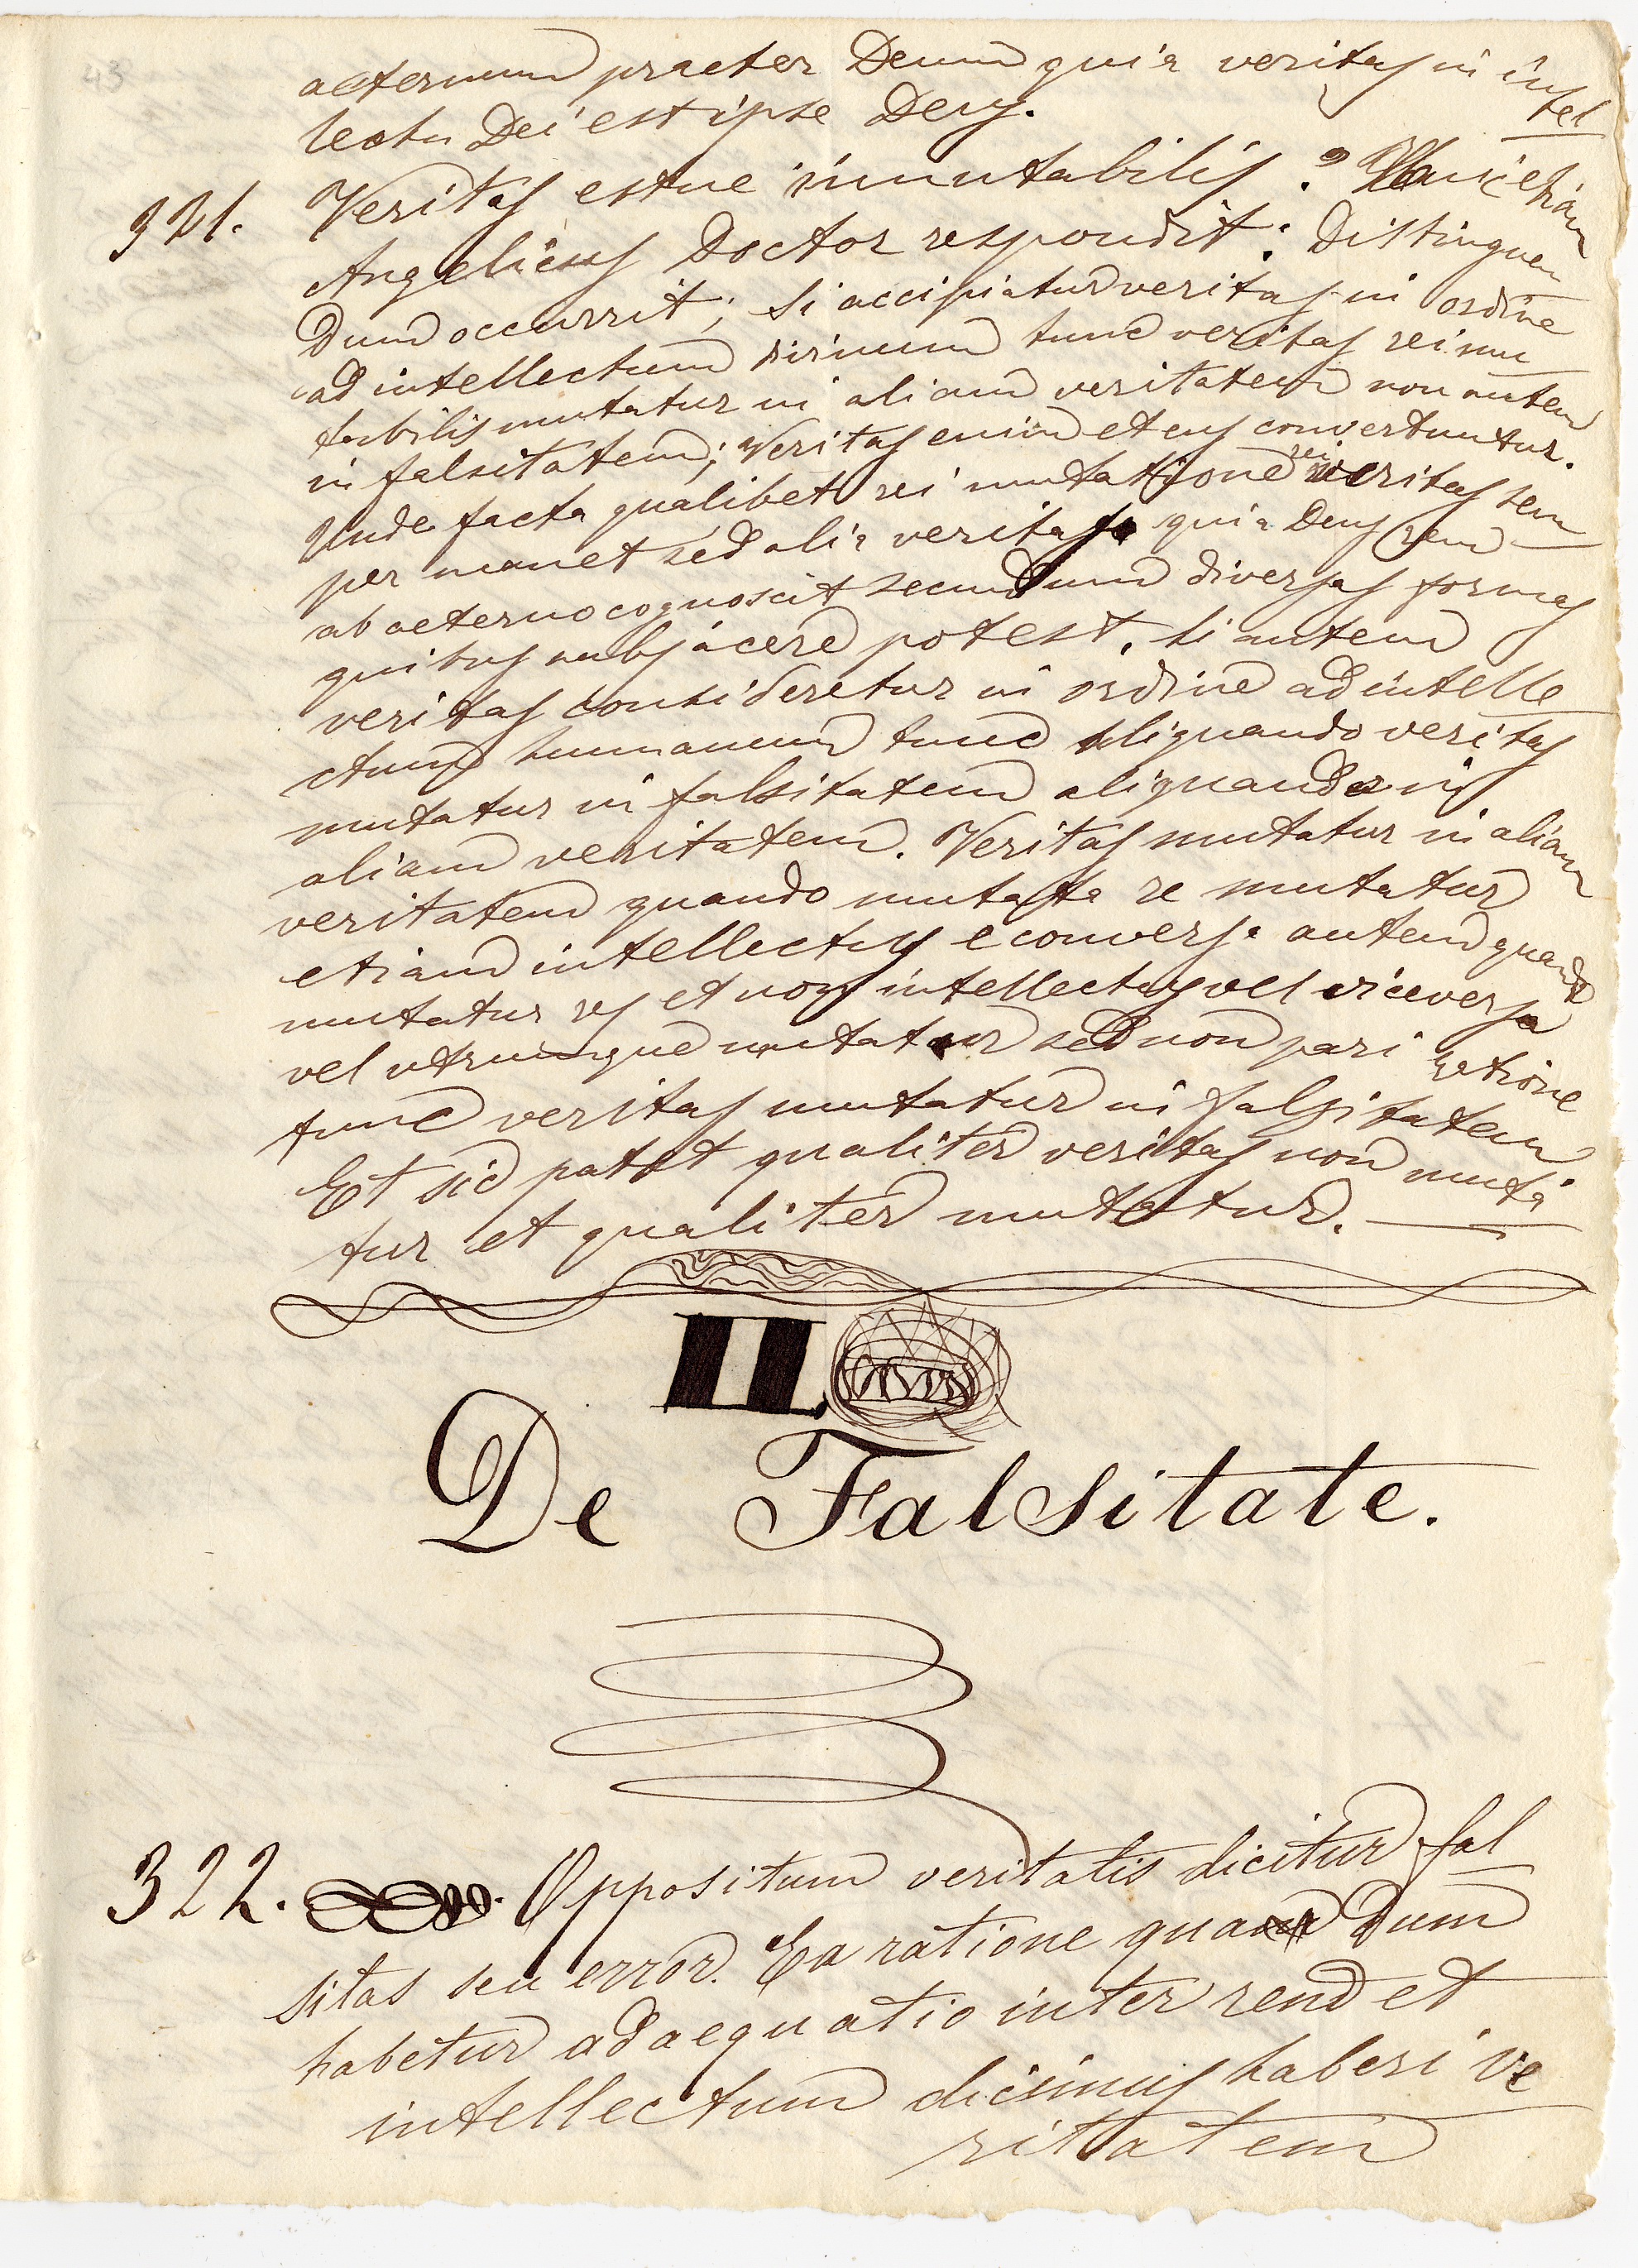 43
aeternum praeter Deum quia veritas in intel
lectu Dei est ipse Deus.
321. Veritas estne inmutabilis? Huic etiam
Angelicus Doctor respondit: Distinguen
dum occurrit; si accipiatur veritas in ordine
ad intellectum divinum tunc veritas rei mu
tabilis mutatur in aliam veritatem non autem
in falsitatem; Veritas enim et ens convertuntur.
Unde facta qualibet rei mutatione rei veritas sem
per manet sed alia veritas quia Deus rem
ab aeterno cognoscit secundum diversas formas
quibus subjacere potest. Si autem
veritas consideretur in ordine ad intelle
ctum humanum tunc aliquando veritas
mutatur in falsitatem aliquando in
aliam veritatem. Veritas mutatur in aliam
veritatem quando mutata re mutatur
etiam intellectus e conversa autem quando
mutatur res et non intellectus vel viceversa
vel utrumque mutatur sed non pari ratione
tunc veritas mutatur in falsitatem
Et sic patet qualiter veritas non muta
tur et qualiter mutatur.
II.
De Falsitate.
322. Oppositum veritatis dicitur fal
sitas seu error. Ea ratione qua dum
habetur adaequatio inter rem et
intellectum dicimus haberi ve
ritatem